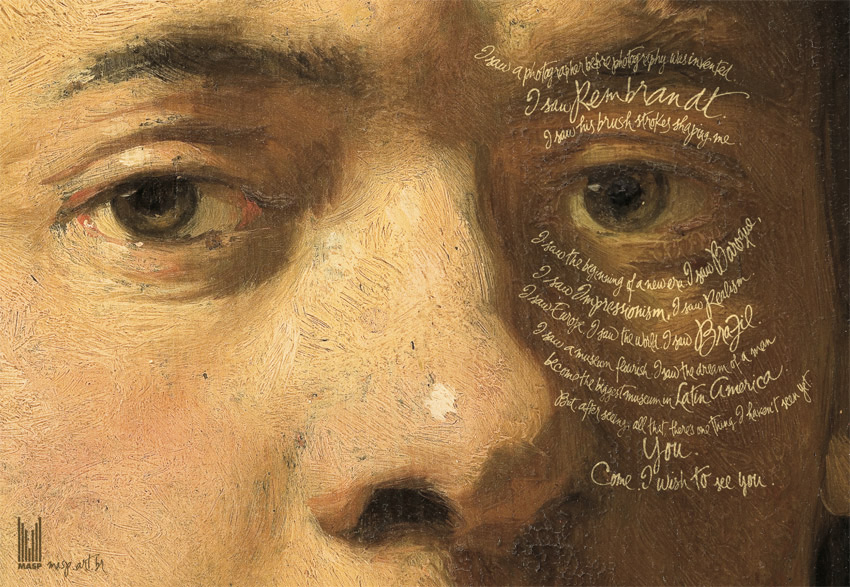 I saw a photographer before photography was invented.
I saw Rembrandt.
I saw his brush strokes shaping me.
I saw the beginning of a new era. I saw Baroque,
I saw Impressionism, I saw Realism.
I saw Europe. I saw the world. I saw Brazil.
I saw a museum flourish. I saw the dream of a man
become the biggest museum in Latin America.
But after seeing all that there's one thing I haven't seen yet.
You.
Come. I wish to see you.
MASP masp.art.br